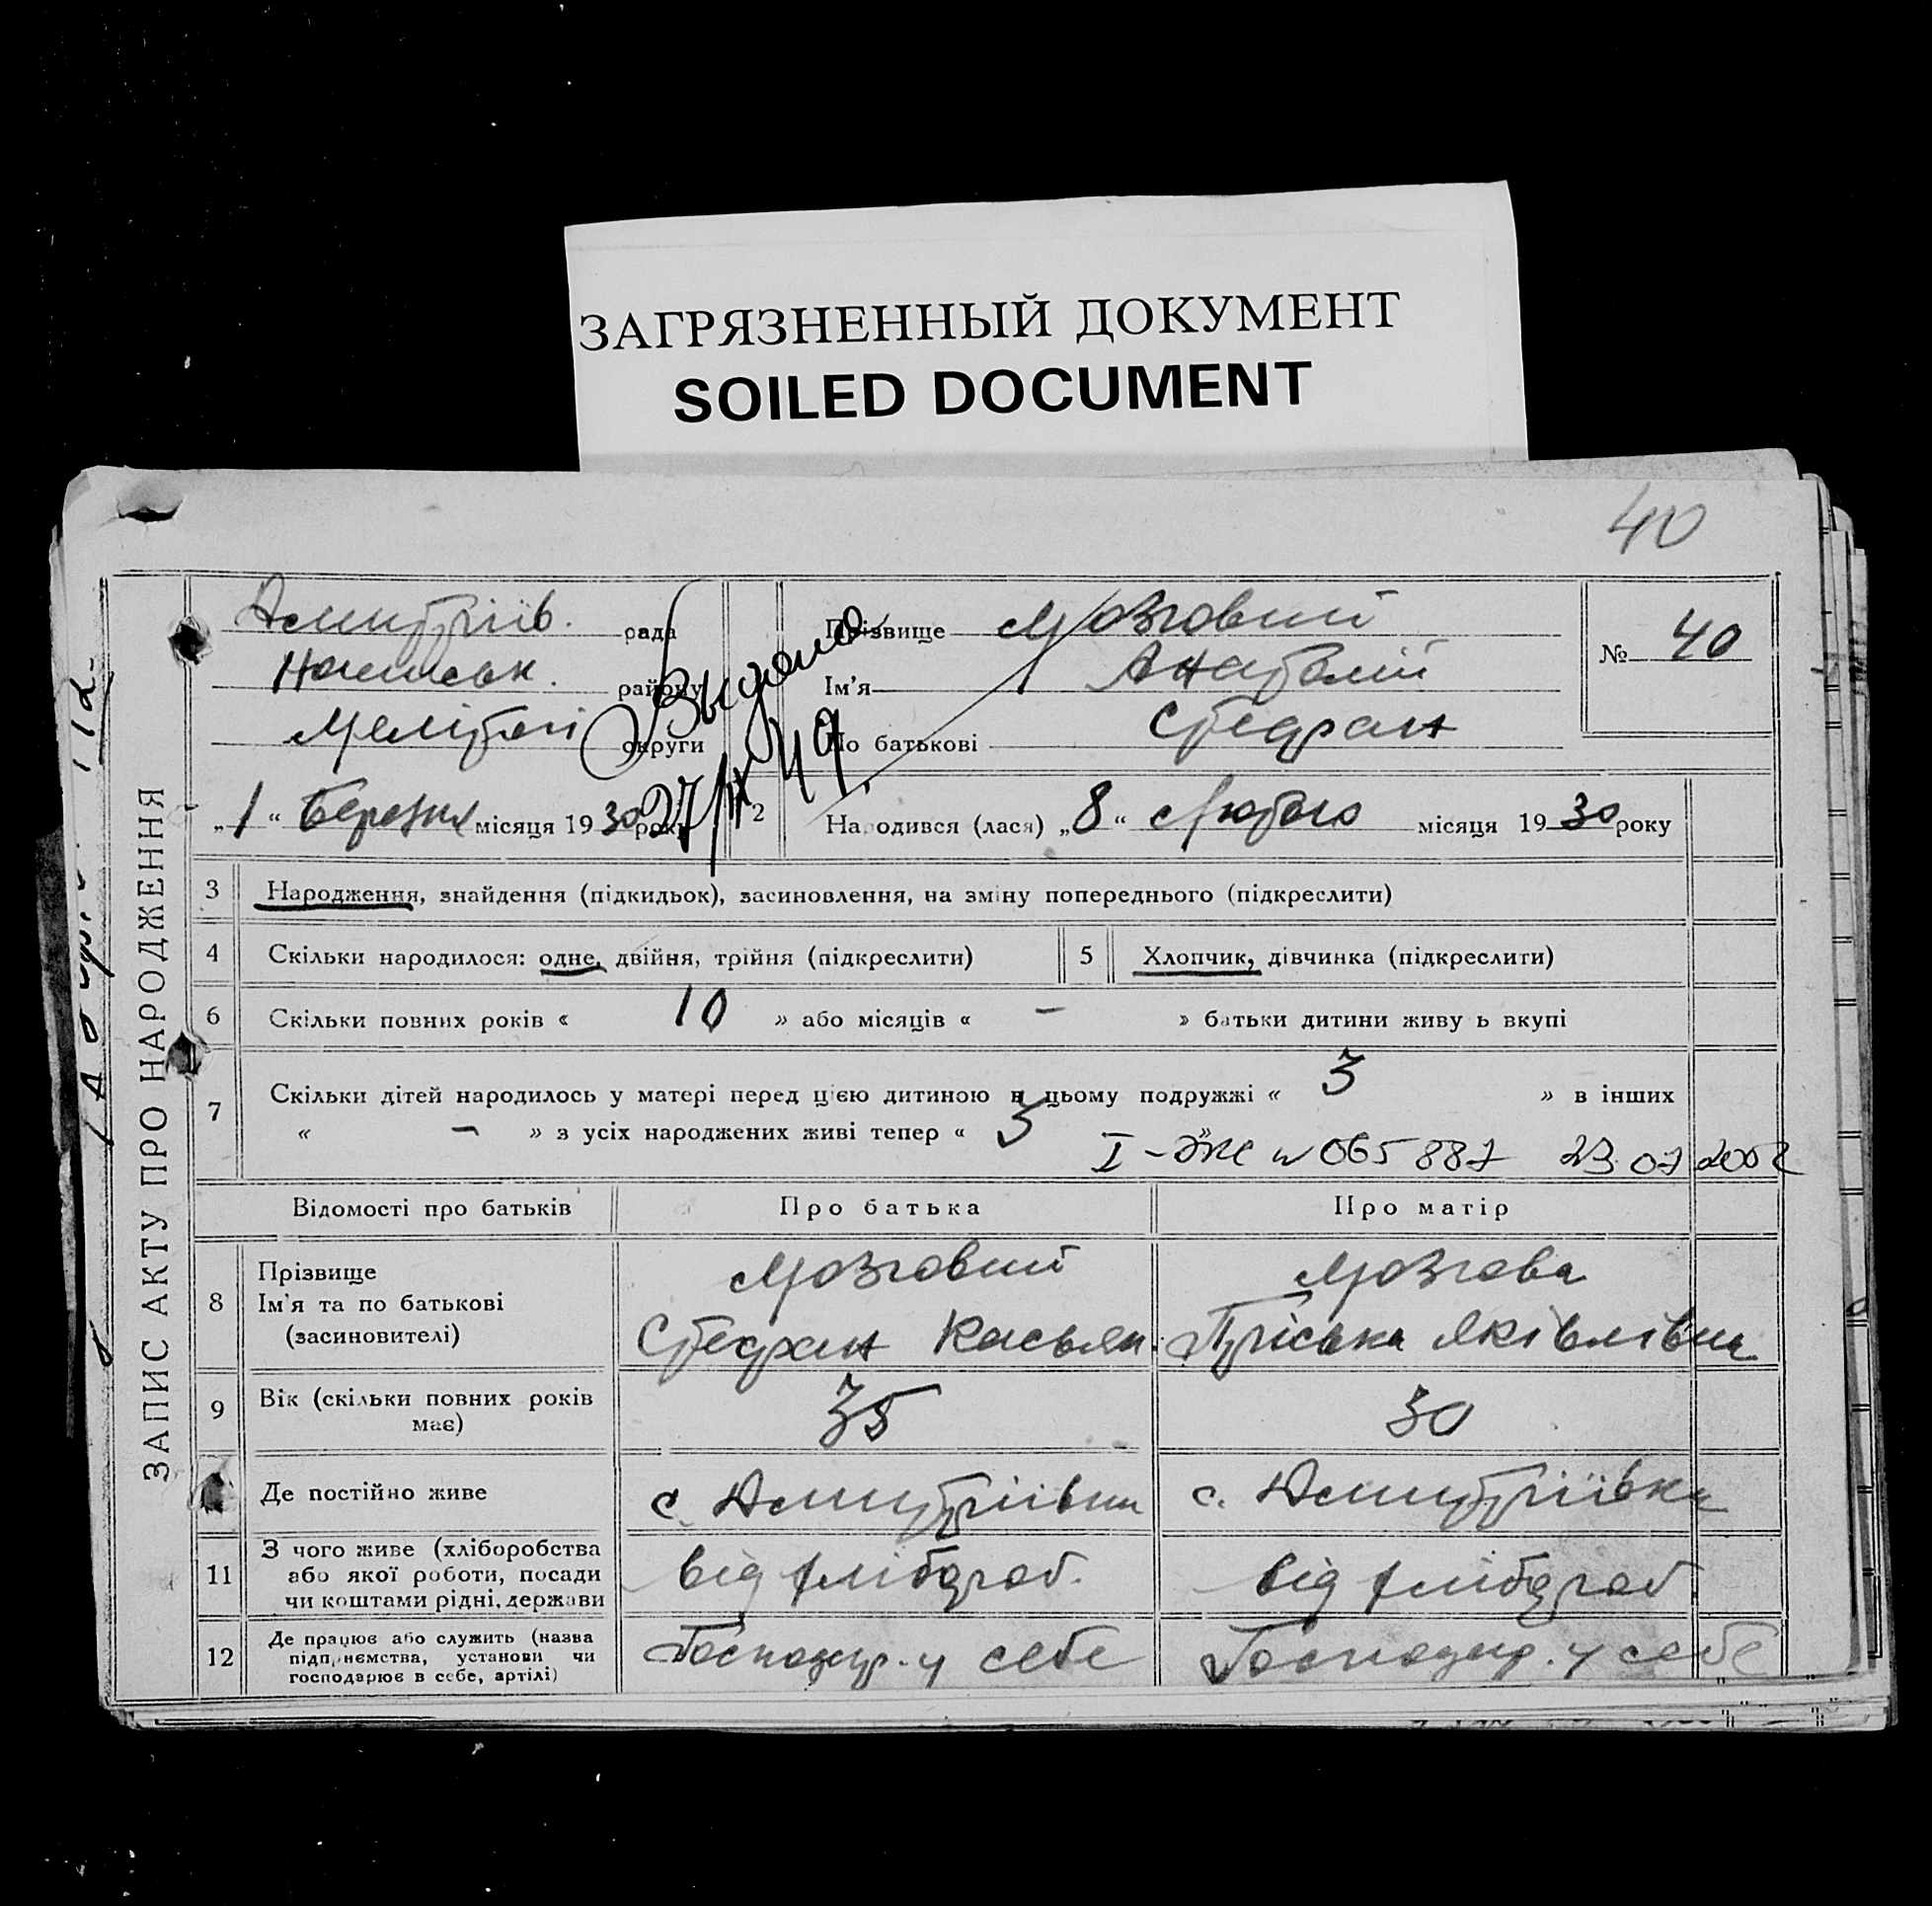 ЗАГРЯЗНЕННЫЙ ДОКУМЕНТ
SOILED DOCUMENT
40
ЗАПИС АКТУ ПРО НАРОДЖЕННЯ
Дмитріїв. рада
району
Меліт округи
„1“ Березня місяця 1930 року
Выдано
27/IX 49
2
Прізвище Мозговий
Ім'я Анатолій
По батькові Стефан
№ 40
Народився (лася) „8“ Лютого місяця 1930 року
3 Народження, знайдення (підкидьок), засиновлення, на зміну попереднього (підкреслити)
4 Скільки народилося: одне, двійня, трійня (підкреслити) 5 Хлопчик, дівчинка (підкреслити)
6 Скільки повних років « 10 » або місяців « – » батьки дитини живу ь вкупі
7 Скільки дітей народилось у матері перед цією дитиною в цьому подружжі « 3 » в інших
« – » з усіх народжених живі тепер « 3 »
I-ЖС № 065887 23.07.2002
Відомості про батьків Про батька Про матір
8 Прізвище
Ім'я та по батькові
(засиновителі)
Мозговий
Стефан Касьян.
Мозгова
Пріська Яківлівна
9 Вік (скільки повних років
має)
35 30
Де постійно живе с. Дмитріївка с. Дмитріївка
11 З чого живе (хліборобства
або якої роботи, посади
чи коштами рідні, держави
від хлібороб. від хлібороб.
12 Де працює або служить (назва
підприємства, установи чи
господарює в себе, артілі)
Господар. у себе Господар. у себе